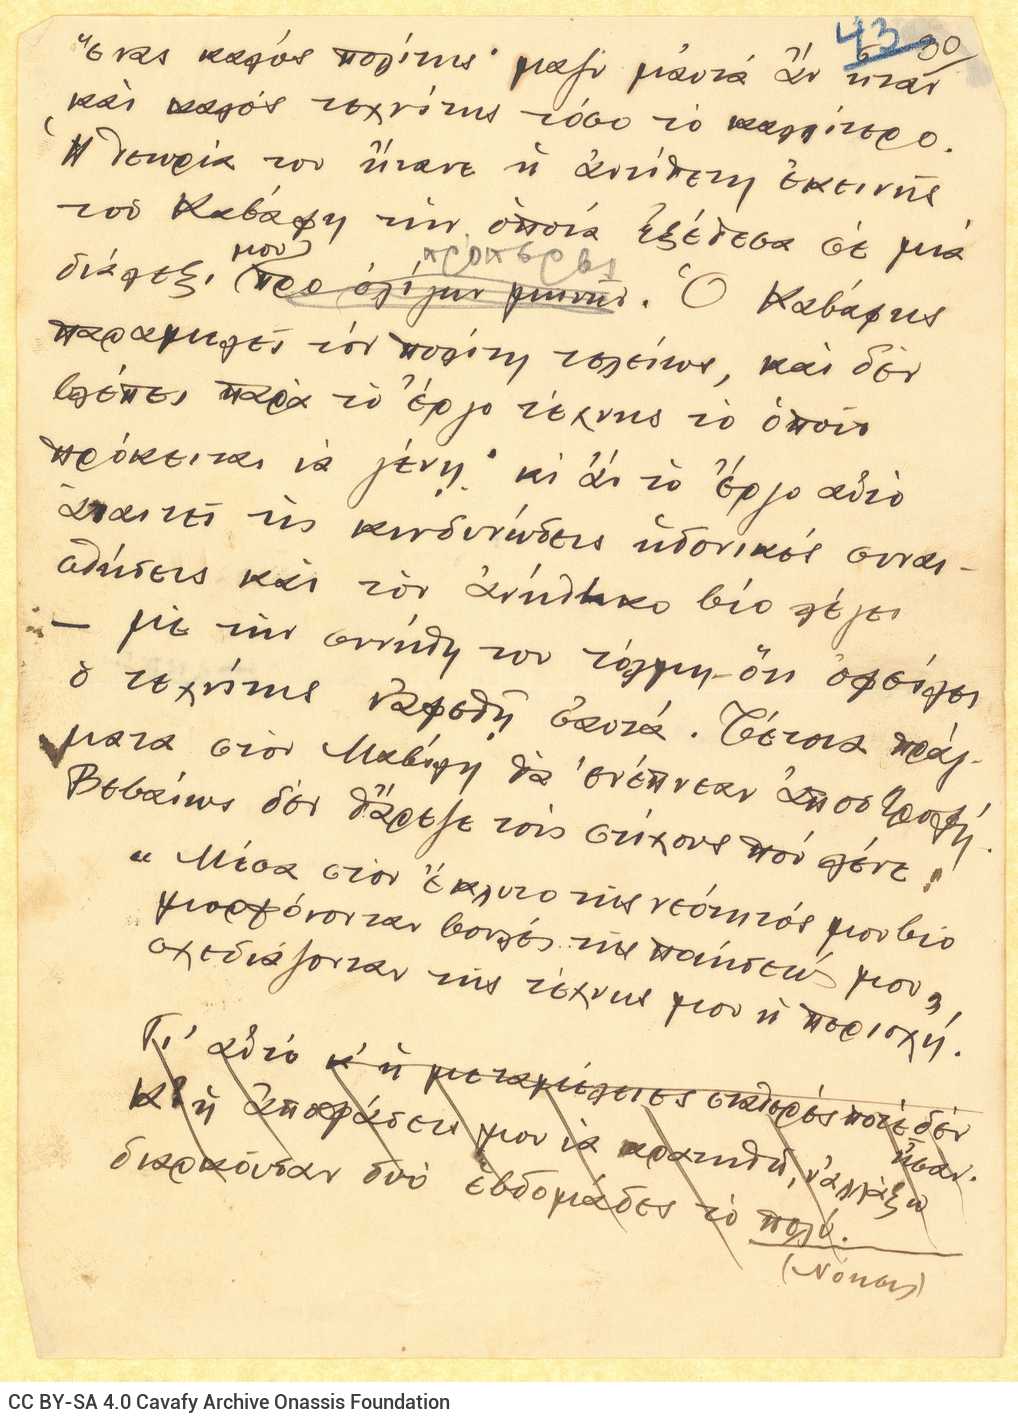 43 30
ἕνας καλός πολίτης· μαζὺ μ' αυτά ἂν ἦταν
καὶ καλός τεχνίτης τόσο τὸ καλλίτερο.
Ἡ θεωρία του ἤτανε ἡ ἀντίθετη ἐκεινῆς
τοῦ Καβάφη τὴν ὁποία ἐξέθεσα σὲ μιὰ
διάλεξί μου προ ὀλίγων μηνῶν. Ὁ Καβάφης
παραμελεῖ τὸν πολίτη τελείως, καὶ δὲν
βλέπει παρὰ τὸ ἔργο τέχνης τὸ ὁποῖο
πρόκειται νὰ γένῃ· κι ἂν τὸ ἔργο αὐτὸ
ἀπαιτεῖ τὴς κινδυνώδεις ἡδονικές συναι-
σθήσεις καὶ τὸν ἀνήθικο βίο λέγει
— μὲ τὴν συνήθη του τόλμη — ὅτι ὀφείλει
ὁ τεχνίτης ν' αφεθῇ σ' αυτά. Τέτοια πράγ-
ματα στὸν Μαβίλη θὰ ἐνέπνεαν ἀποστροφή.
Βεβαίως δὲν θἄρεζε τοὺς στίχους ποὺ λένε:
" Μέσα στὸν ἔκλυτο τῆς νεότητός μου βίο
μορφόνονταν βουλές τῆς ποιήσεώς μου,
σχεδιάζονταν τῆς τέχνης μου ἡ περιοχή.
Γι' αὐτὸ κ' ἡ μεταμέλειες σταθερές ποτὲ δὲν
ἦσαν.
Κ' ἡ ἀποφάσεις μου νὰ κρατηθῶ, ν' αλλάξω
διαρκοῦσαν δυὸ ἑβδομάδες τὸ πολύ.
(Νόησις)
CC BY-SA 4.0 Cavafy Archive Onassis Foundation